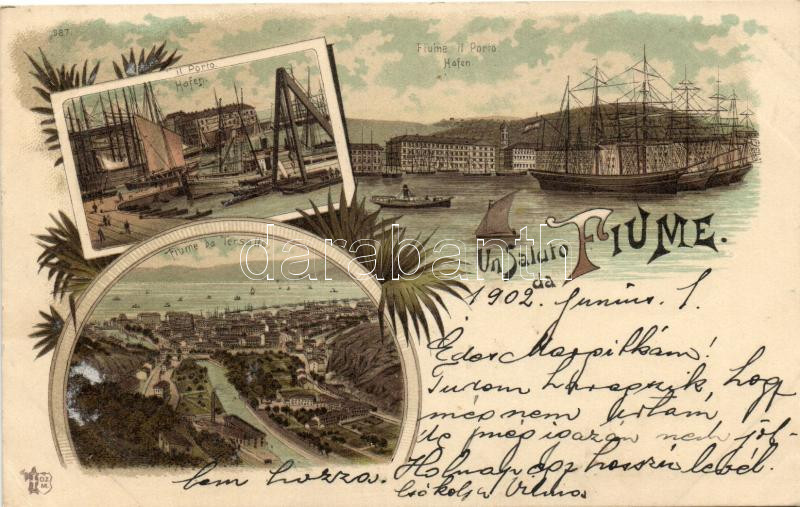 987.
Il Porto
Hafen
Fiume il Porto
Hafen
Fiume da Tersatto
Un Saluto
da FIUME.
darabanth
1902. Junius. 1.
Édes Maspilkám!
Tudom haragszik, hogy
még nem irtam
de még igazán nem jöt-
tem hozza. Holnap egy hosszú levél.
Csókolja Vilmos